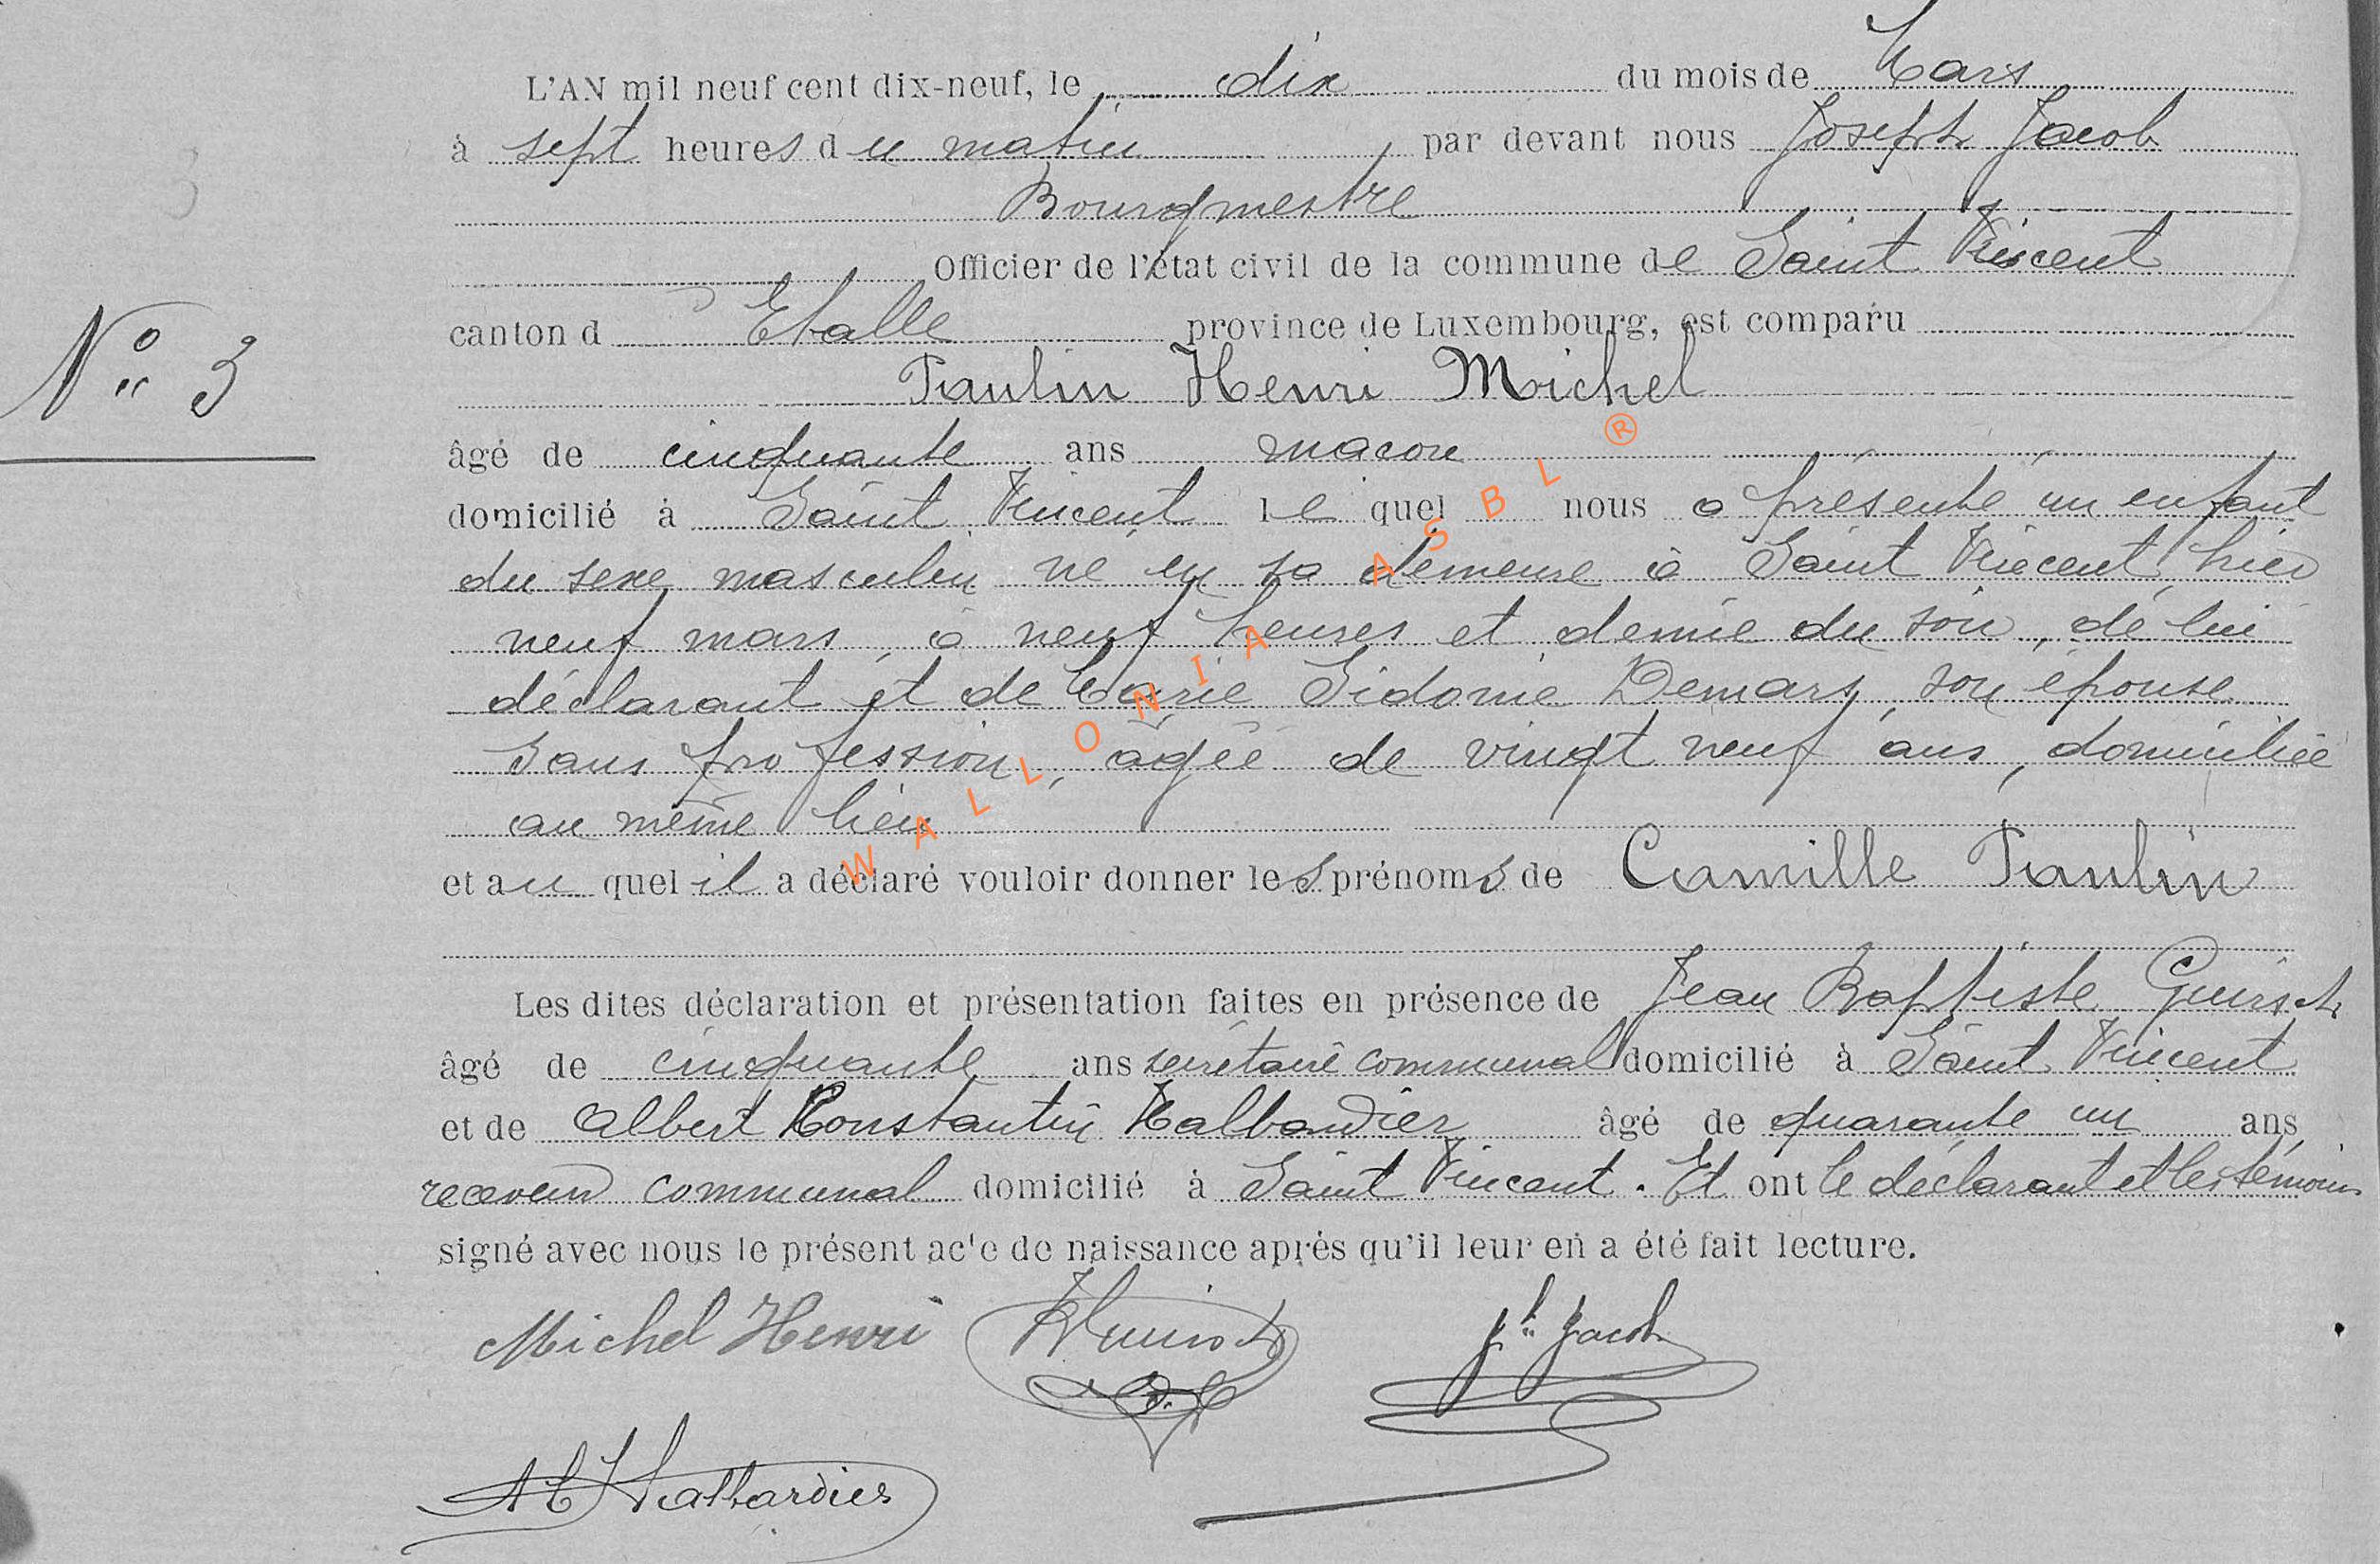 L'AN mil neuf cent dix-neuf, le dix du mois de Mars
à sept heures du matin par devant nous Joseph Jacob
Bourgmestre
Officier de l'état civil de la commune de Saint Vincent
canton d Etalle province de Luxembourg, est comparu
N° 3
Paulin Henri Michel
âgé de cinquante ans macon
domicilié à Saint Vincent lequel nous a présenté un enfant
du sexe masculin né en sa demeure à Saint Vincent hier
neuf mars, à neuf heures et demie du soir, de lui
déclarant et de Marie Sidonie Demars, son épouse
sans profession, âgée de vingt neuf ans, domiciliée
au même lieu
et auquel il a déclaré vouloir donner les prénoms de Camille Paulin
Les dites déclaration et présentation faites en présence de Jean Baptiste Guirsch
âgé de cinquante ans secrétaire communal domicilié à Saint Vincent
et de Albert Constantin Halbardier âgé de quarante un ans
receveur communal domicilié à Saint Vincent. Et ont le déclarant et les témoins
signé avec nous le présent acte de naissance après qu'il leur en a été fait lecture.
Michel Henri Jh Jacob
Halbardier
WALLONIA ASBL ®